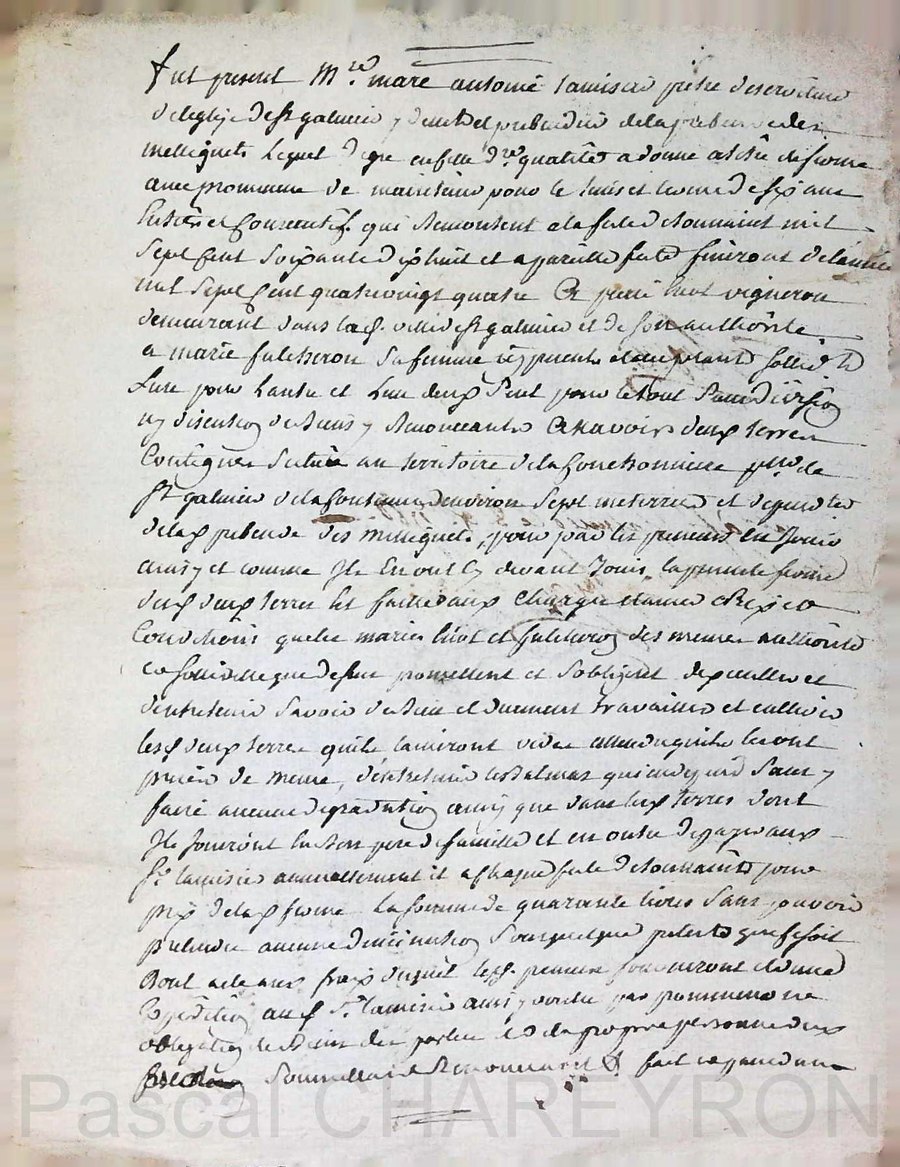 fut present Mre marc antoine tamisier prêtre deserviteur
de leglize de st galmier y demt et prebendier de la prebende des
mellequets Lequel de gre en fte qualité a donné a titre de ferme
avec promesse de maintenir pour le tems et terme de six ans
entiers et consecutifs qui remontent a la fete de toussaint mil
sept cent soixante dixhuit et a pareille fete finiront de lannée
mil sept cent quatrevingt quatre a pierre huot vigneron
demeurant dans la d. ville de st galmier et de son authorité
a marie fulcheron sa femme icy presents et acceptants sollidt
lun pour lautre et lun deux seul pour le tout sans division
ny discution de biens y renonceants a savoir deux terres
contigues scituées au territoire de la fouchonniere psse de
st galmier de la contenue denviron sept meterées et dependtes
de la d prebende des mellequets, pour par les preneurs en jouir
ainsy et comme Ils en ont cy devant joui, la presente ferme
des d deux terres est faitte aux charges clauses et
conditions que les mariés huot et fulcheron des memes authorité
et sollidité que dessus promettent et sobligent de
dentretenir savoir de bien et duement travailler et cultiver
les d deux terres quils laisseront vides attendu quils les ont
prises de meme, dentretenir les qui en dependt sans y
faire aucune degradation ainsy que dans les d terres dont
Ils jouiront en bon pere de famille et en outre de payer aux
sr tamisier annuellement et a chaque fete de toussaint pour
prix de la d ferme la somme de quarante livres sans pouvoir
pretendre aucune diminution sous quelque pretexte que ce soit
dont acte aux frais duquel les d. preneurs fourniront
expedition au d sr tamisier ainsy voulu par promesse
obligation de biens des parties et de propre personne
soumission et renonciation & fait et passé dans
Pascal CHAREYRON